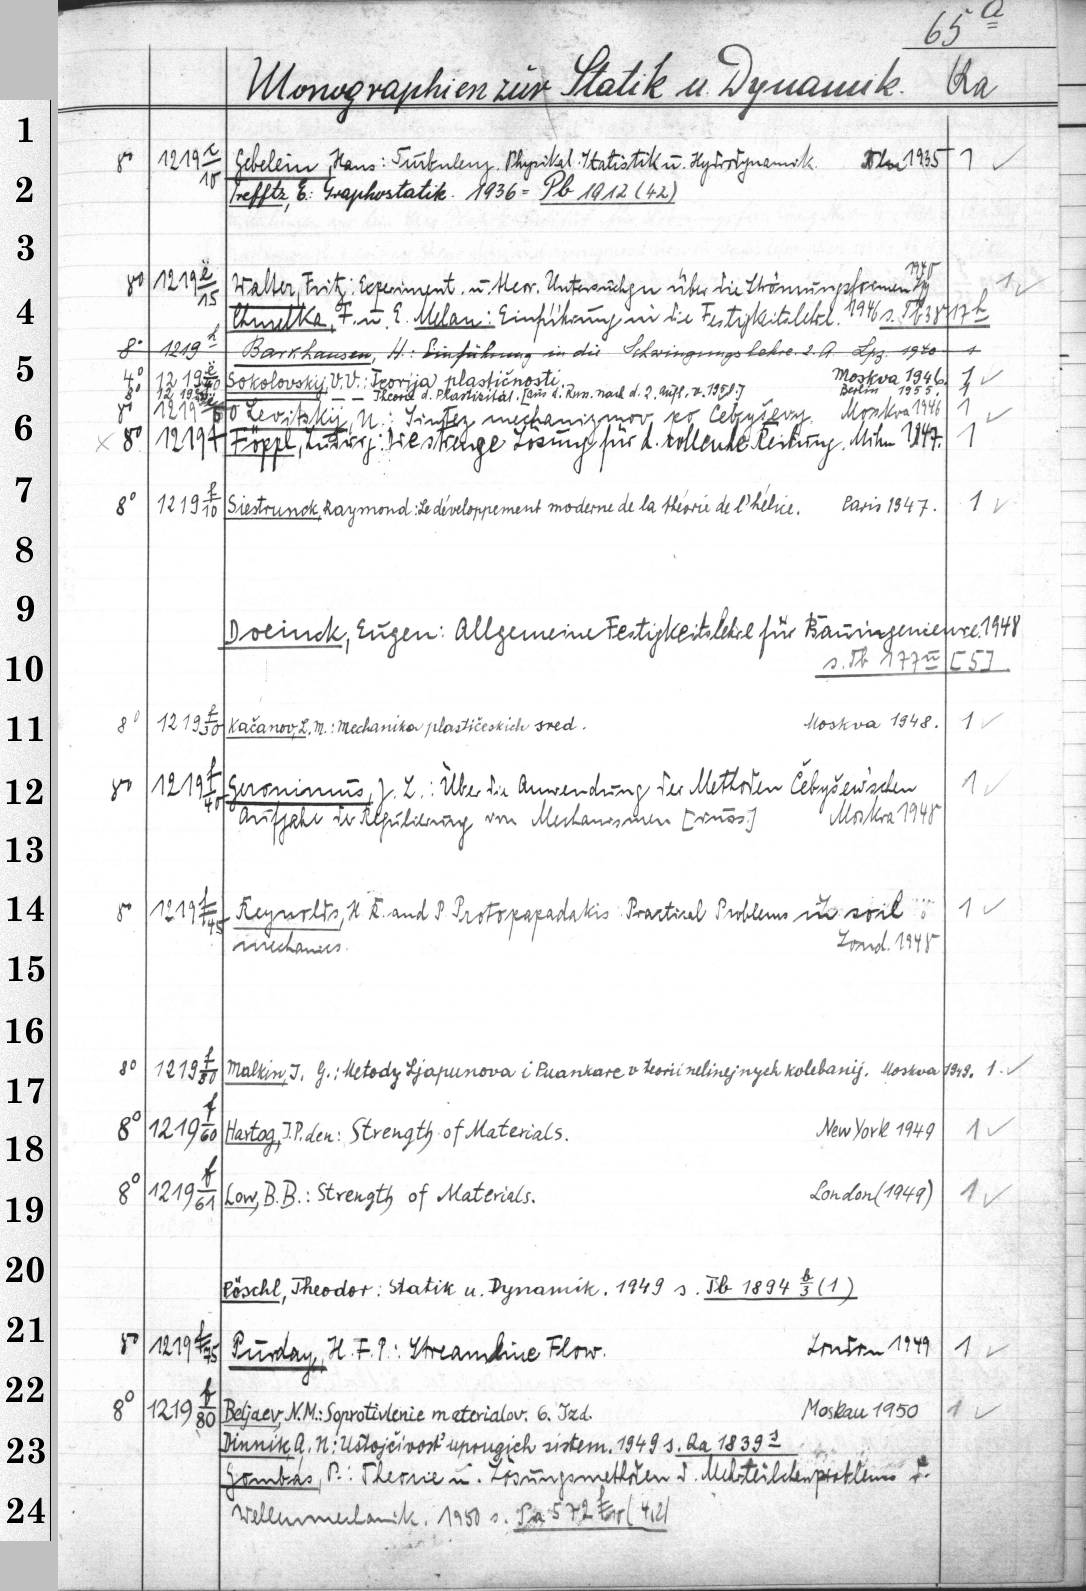 65 a
Monographien zur Statik u. Dynamik. Ra
1
8° 1219 Gebelein, Hans: Turbulenz. Physikal. Statistik u. Hydrodynamik. Bln 1935 1
2
Trefftz, E: Graphostatik. 1936 = Pb 1912 (42)
3
1940
8° 1219 e/15 Walter, Fritz: Experiment. u. theor. Untersuchgn über die Strömungsformen 1
4
Chmelka, F. u. E. Melan: Einführung in die Festigkeitslehre. 1946 s. Tb 3817
8° 1219 Barkhausen, H: Einführung in die Schwingungslehre. 2. A Lpz. 1940 1
5
4° 1219 Sokolovskij, V. V.: Teorija plastičnosti. Moskva 1946. 1
8° 1219 — — Theorie d. Plastizität. [aus d. Russ. nach d. 2. Aufl. v. 1950.] Berlin 1955. 1
8° 1219 Levitskij, N.: Sintez mechanizmov po Čebyševy. Moskva 1946 1
6
× 8° 1219 f Föppl, Ludwig: Die strenge Lösung für d. rollende Reibung. Mchn 1947. 1
7
8° 1219 f/10 Siestrunck, Raymond: Le développement moderne de la théorie de l'hélice. Paris 1947. 1
8
9
Doeinck, Eugen: Allgemeine Festigkeitslehre für Bauingenieure. 1948
10
s. Tb 177 [5]
11
8° 1219 f/30 Kačanov, L. M.: Mechanika plastičeskich sred. Moskva 1948. 1
12
8° 1219 f/40 Geronimus, J. L.: Über die Anwendung der Methoden Čebyšew'schen 1
Aufgabe der Regulierung von Mechanismen [russ.] Moskva 1948
13
14
8° 1219 f/45 Reynolds, H R. and P Protopapadakis Practical Problems in soil 1
mechanics. Lond. 1948
15
16
8° 1219 f/50 Malkin, I. G.: Metody Ljapunova i Puankare v teorii nelinejnych kolebanij. Moskva 1949. 1
17
8° 1219 f/60 Hartog, J. P. den: Strength of Materials. New York 1949 1
18
8° 1219 f/61 Low, B. B.: Strength of Materials. London (1949) 1
19
20
Pöschl, Theodor: Statik u. Dynamik. 1949 s. Tb 1894 b/3 (1)
21
8° 1219 f/75 Purday, H. F. P.: Streamline Flow. London 1949 1
22
8° 1219 f/80 Beljaev, N. M.: Soprotivlenie materialov. 6. Izd. Moskau 1950 1
23
Dinnik, A. N: Ustojčivost' uprugich sistem. 1949 s. Ra 1839
Gombás, P.: Theorie u. Lösungsmethoden d. Mehrteilchenproblems d.
24
Wellenmechanik. 1950 s. Pa 572 (4,2)